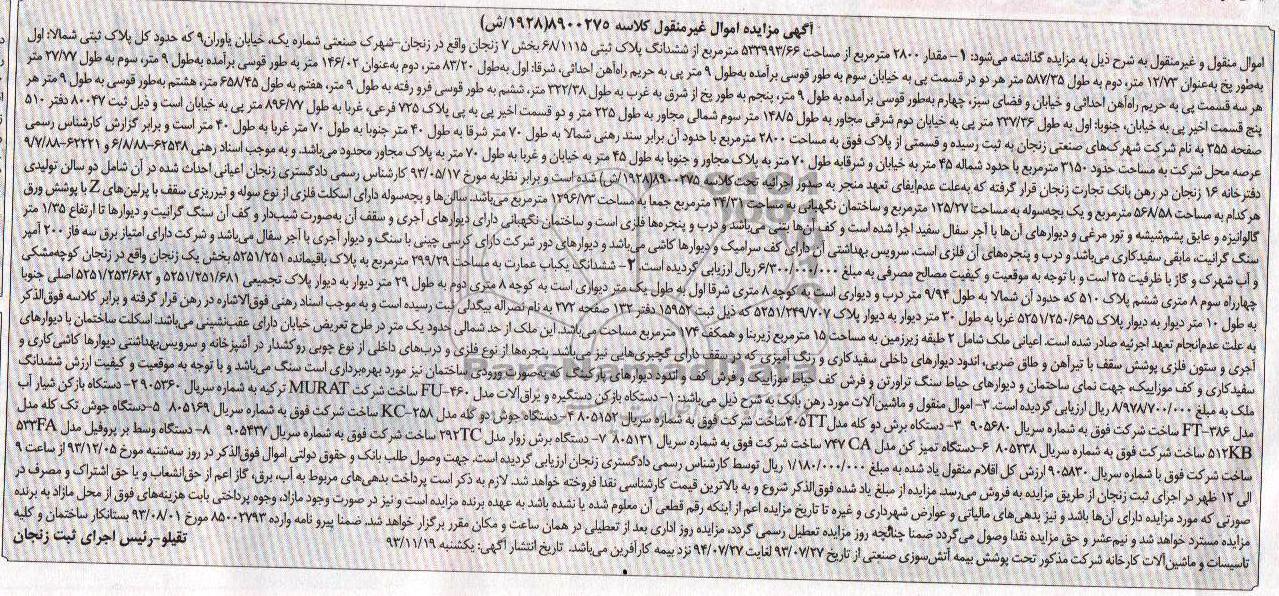 آگهی مزایده اموال غیرمنقول کلاسه ۸۹۰۰۲۷۵(۱۹۲۸/ش)
اموال منقول و غیرمنقول به شرح ذیل به مزایده گذاشته می‌شود: ۱- مقدار ۲۸۰۰ مترمربع از مساحت ۵۳۳۹۹۳/۶۶ مترمربع از ششدانگ پلاک ثبتی ۶۸/۱۱۱۵ بخش ۷ زنجان واقع در زنجان-شهرک صنعتی شماره یک، خیابان یاوران۹ که حدود کل پلاک ثبتی شمالا: اول
به‌طور پخ به‌عنوان ۱۲/۷۳ متر، دوم به طول ۵۸۷/۳۵ متر هر دو در قسمت پی به خیابان سوم به طور قوسی برآمده به‌طول ۹ متر پی به حریم راه‌آهن احداثی، شرقا: اول به‌طول ۸۳/۲۰ متر، دوم به‌عنوان ۱۴۶/۰۲ متر به طور قوسی برآمده به‌طول ۹ متر، سوم به طول ۲۷/۷۷ متر
هر سه قسمت پی به حریم راه‌آهن احداثی و خیابان و فضای سبز، چهارم به‌طور قوسی برآمده به طول ۹ متر، پنجم به طور پخ از شرق به غرب به طول ۳۲۲/۳۸ متر، ششم به طور قوسی فرو رفته به طول ۹ متر، هفتم به طول ۶۵۸/۴۵ متر، هشتم به‌طور قوسی به طول ۹ متر هر
پنج قسمت اخیر پی به خیابان، جنوبا: اول به طول ۲۳۷/۳۶ متر پی به خیابان دوم شرقی مجاور به طول ۱۴۸/۵ متر سوم شمالی مجاور به طول ۲۲۵ متر و دو قسمت اخیر پی به پی پلاک ۷۲۵ فرعی، غربا به طول ۸۹۶/۷۷ متر پی به خیابان است و ذیل ثبت ۸۰۰۴۷ دفتر ۵۱۰
صفحه ۳۵۵ به نام شرکت شهرک‌های صنعتی زنجان به ثبت رسیده و قسمتی از پلاک فوق به مساحت ۲۸۰۰ مترمربع با حدود آن برابر سند رهنی شمالا به طول ۷۰ متر شرقا به طول ۴۰ متر جنوبا به طول ۷۰ متر غربا به طول ۴۰ متر است و برابر گزارش کارشناس رسمی
عرصه محل شرکت به مساحت حدود ۳۱۵۰ مترمربع با حدود شماله ۴۵ متر به خیابان و شرقابه طول ۷۰ متر به پلاک مجاور و جنوبا به طول ۴۵ متر به خیابان و غربا به طول ۷۰ متر به پلاک مجاور محدود می‌باشد. و به موجب اسناد رهنی ۶۲۵۳۸-۶/۸/۸۸ و ۶۲۲۲۱-۹/۷/۸۸
دفترخانه ۱۶ زنجان در رهن بانک تجارت زنجان قرار گرفته که به‌علت عدم‌ایفای تعهد منجر به صدور اجرائیه تحت‌کلاسه ۸۹۰۰۲۷۵(۱۹۲۸/ش) شده است و برابر نظریه مورخ ۹۳/۰۵/۱۷ کارشناس رسمی دادگستری زنجان اعیانی احداث شده در آن شامل دو سالن تولیدی
هرکدام به مساحت ۵۶۸/۵۸ مترمربع و یک بچه‌سوله به مساحت ۱۲۵/۲۷ مترمربع و ساختمان نگهبانی به مساحت ۳۴/۳۱ مترمربع جمعا به مساحت ۱۲۹۶/۷۳ مترمربع می‌باشد. سالن‌ها و بچه‌سوله دارای اسکلت فلزی از نوع سوله و تیرریزی سقف با پرلین‌های Z با پوشش ورق
گالوانیزه و عایق پشم‌شیشه و تور مرغی و دیوارهای آن‌ها با آجر سفال سفید اجرا شده است و کف آن‌ها بتنی می‌باشد و درب و پنجره‌ها فلزی است و ساختمان نگهبانی دارای دیوارهای آجری و سقف آن به‌صورت شیب‌دار و کف آن سنگ گرانیت و دیوارها تا ارتفاع ۱/۳۵ متر
سنگ گرانیت، مابقی سفیدکاری می‌باشد و درب و پنجره‌های آن فلزی است. سرویس بهداشتی آن دارای کف سرامیک و دیوارها کاشی می‌باشد و دیوارهای دور شرکت دارای کرسی چینی با سنگ و دیوار آجری با آجر سفال می‌باشد و شرکت دارای امتیاز برق سه فاز ۲۰۰ آمپر
و آب شهرک و گاز با ظرفیت ۲۵ است و با توجه به موقعیت و کیفیت مصالح مصرفی به مبلغ ۶/۳۰۰/۰۰۰/۰۰۰ ریال ارزیابی گردیده است. ۲- ششدانگ یکباب عمارت به مساحت ۲۹۹/۲۹ مترمربع به پلاک باقیمانده ۵۲۵۱/۲۵۱ بخش یک زنجان واقع در زنجان کوچه‌مشکی
چهارراه سوم ۸ متری ششم پلاک ۵۱۰ که حدود آن شمالا به طول ۹/۹۴ متر درب و دیواری است به کوچه ۸ متری شرقا اول به طول یک متر دیواری است به کوچه ۸ متری دوم به طول ۲۹ متر دیوار به دیوار پلاک تجمیعی ۵۲۵۱/۲۵۱/۶۸۱ و ۵۲۵۱/۲۵۳/۶۸۲ اصلی جنوبا
به طول ۱۰ متر دیوار به دیوار پلاک ۵۲۵۱/۲۵۰/۶۹۵ غربا به طول ۳۰ متر دیوار به دیوار پلاک ۵۲۵۱/۲۴۹/۷۰۷ که ذیل ثبت ۱۵۹۵۲ دفتر ۱۳۲ صفحه ۲۷۲ به نام نصراله بیگدلی ثبت رسیده است و به موجب اسناد رهنی فوق‌الاشاره در رهن قرار گرفته و برابر کلاسه فوق‌الذکر
به علت عدم‌انجام تعهد اجرئیه صادر شده است. اعیانی ملک شامل ۲ طبقه زیرزمین به مساحت ۱۵ مترمربع زیربنا و همکف ۱۷۴ مترمربع مساحت می‌باشد. این ملک از حد شمالی حدود یک متر در طرح تعریض خیابان دارای عقب‌نشینی می‌باشد. اسکلت ساختمان با دیوارهای
آجری و ستون فلزی پوشش سقف با تیرآهن و طاق ضربی، اندود دیوارهای داخلی سفیدکاری و رنگ آمیزی که در سقف دارای گچبری‌هایی نیز می‌باشد. پنجره‌ها از نوع فلزی و درب‌های داخلی از نوع چوبی روکشدار در آشپزخانه و سرویس‌بهداشتی دیوارها کاشی‌کاری و
سفیدکاری و کف موزاییک، جهت نمای ساختمان و دیوارهای حیاط سنگ تراورتن و فرش کف حیاط موزاییک و فرش کف و اندود دیوارهای پارکینگ که به‌صورت ورودی ساختمان نیز مورد بهره‌برداری است سنگ می‌باشد و با توجه به موقعیت و کیفیت ارزش ششدانگ
ملک به مبلغ ۸/۹۷۸/۷۰۰/۰۰۰ ریال ارزیابی گردیده است. ۳- اموال منقول و ماشین‌آلات مورد رهن بانک به شرح ذیل می‌باشد: ۱- دستگاه بازکن دستگیره و یراق‌آلات مدل FU-۴۶۰ ساخت شرکت MURAT ترکیه به شماره سریال ۹۰۵۳۶۰ ۲- دستگاه بازکن شیار آب
مدل FT-۳۸۶ ساخت شرکت فوق به شماره سریال ۹۰۵۶۸۰ ۳- دستگاه برش دو کله مدل۴۰۵TT ساخت شرکت فوق به شماره سریال ۸۰۵۱۵۲ ۴- دستگاه جوش دو کله مدل KC-۲۵۸ ساخت شرکت فوق به شماره سریال ۸۰۵۱۶۹ ۵-دستگاه جوش تک کله مدل
۵۱۲KB ساخت شرکت فوق به شماره سریال ۸۰۵۲۳۸ ۶-دستگاه تمیز کن مدل ۷۴۷ CA ساخت شرکت فوق به شماره سریال ۸۰۵۱۳۱ ۷- دستگاه برش زوار مدل ۲۹۲TC ساخت شرکت فوق به شماره سریال ۹۰۵۴۳۷ ۸- دستگاه وسط بر پروفیل مدل ۵۳۳FA
ساخت شرکت فوق با شماره سریال ۹۰۵۸۳۰ ارزش کل اقلام منقول یاد شده به مبلغ ۱/۱۸۰/۰۰۰/۰۰۰ ریال توسط کارشناس رسمی دادگستری زنجان ارزیابی گردیده است. جهت وصول طلب بانک و حقوق دولتی اموال فوق‌الذکر در روز سه‌شنبه مورخ ۹۳/۱۲/۰۵ از ساعت ۹
الی ۱۲ ظهر در اجرای ثبت زنجان از طریق مزایده به فروش می‌رسد. مزایده از مبلغ یاد شده فوق‌الذکر شروع و به بالاترین قیمت کارشناسی نقدا فروخته خواهد شد. لازم به ذکر است پرداخت بدهی‌های مربوط به آب، برق، گاز اعم از حق‌انشعاب و یا حق اشتراک و مصرف در
صورتی که مورد مزایده دارای آن‌ها باشد و نیز بدهی‌های مالیاتی و عوارض شهرداری و غیره تا تاریخ مزایده اعم از اینکه رقم قطعی آن معلوم شده یا نشده باشد به عهده برنده مزایده است و نیز در صورت وجود مازاد، وجوه پرداختی بابت هزینه‌های فوق از محل مازاد به برنده
مزایده مسترد خواهد شد و نیم‌عشر و حق مزایده نقدا وصول می‌گردد ضمنا چنانچه روز مزایده تعطیل رسمی گردد، مزایده روز اداری بعد از تعطیلی در همان ساعت و مکان مقرر برگزار خواهد شد. ضمنا پیرو نامه وارده ۸۵۰۰۲۷۹۳ مورخ ۹۳/۰۸/۰۱ بستانکار ساختمان و کلیه
تاسیسات و ماشین‌آلات کارخانه شرکت مذکور تحت پوشش بیمه آتش‌سوزی صنعتی از تاریخ ۹۳/۰۷/۲۷ لغایت ۹۴/۰۷/۲۷ نزد بیمه کارآفرین می‌باشد. تاریخ انتشار آگهی: یکشنبه ۹۳/۱۱/۱۹
تقیلو-رئیس اجرای ثبت زنجان
ParsNamadData